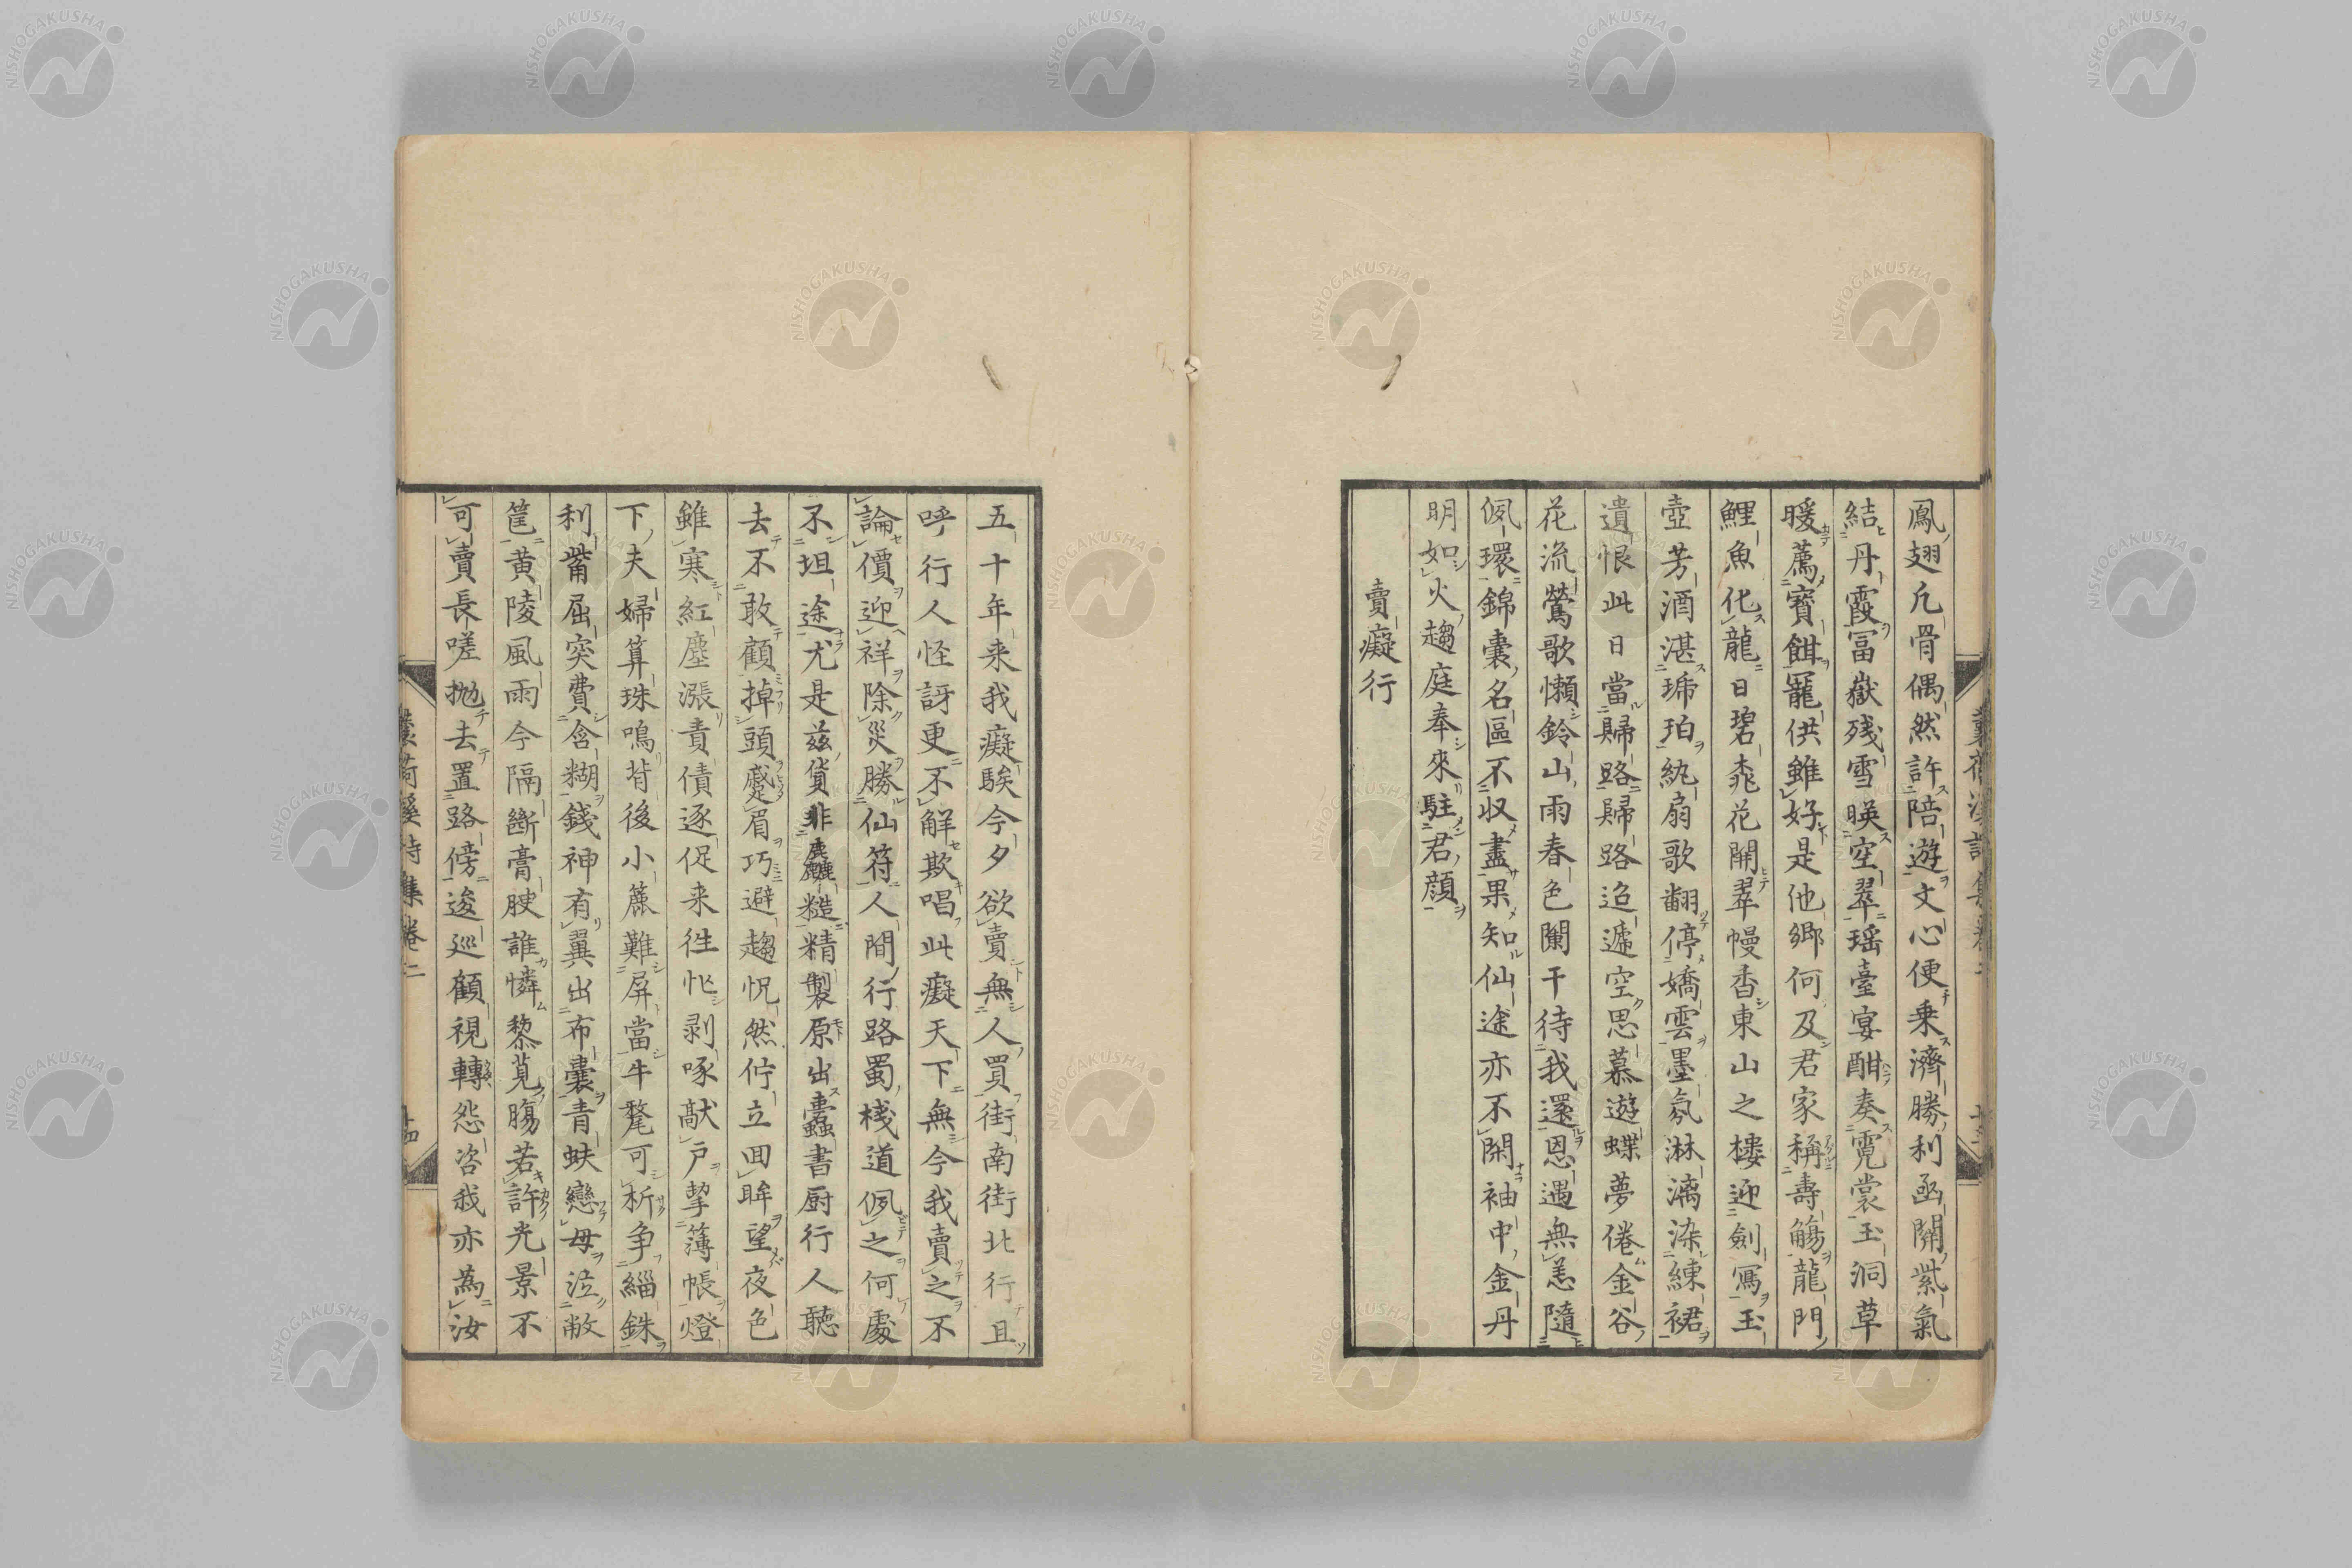 鳳翅凡骨偶然許陪遊文心便乗濟勝利函關紫氣
結丹霞冨嶽残雪暎空翠瑶臺宴酣奏霓裳玉洞草
暖薦寶餌寵供雖好是他郷何及君家稱壽觴龍門
鯉魚化龍日碧桃花開翠幔香東山之樓迎劍寫玉
壺芳酒湛琥珀紈扇歌翻停嬌雲墨氛淋漓染練裙
遺恨此日當歸路歸路迢遞空思慕遊蝶夢倦金谷
花流鶯歌懶鈴山雨春色闌干待我還恩遇無恙隨
佩環錦囊名區不収盡果知仙途亦不閑袖中金丹
明如火趨庭奉來駐君顔
賣癡行
五十年来我癡騃今夕欲賣無人買街南街北行且
呼行人怪訝更不解欺唱此癡天下無今我賣之不
論價迎祥除災勝仙符人間行路蜀棧道佩之何處
不坦途尤是茲貨非麁糙精製原出蠹書厨行人聽
去不敢顧掉頭蹙眉巧避趨怳然佇立回眸望夜色
雖寒紅塵漲責債逐促来徃忙剥啄獻戸挈簿帳燈
下夫婦算珠鳴背後小簾難屏當牛氂可析争緇銖
利觜屈突費含糊錢神有翼出布囊青蚨戀母泣敝
篋黄陵風雨今隔断膏腴誰憐黎莧腸若許光景不
可賣長嗟抛去置路傍逡巡顧視轉怨咨我亦為汝
蘘荷溪詩集巻二
十四
NISHOGAKUSHA